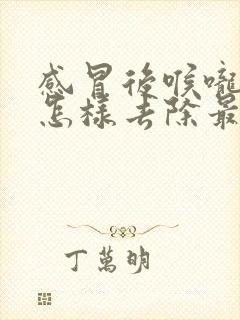 感冒後喉嚨
怎樣去除最
丁萬明